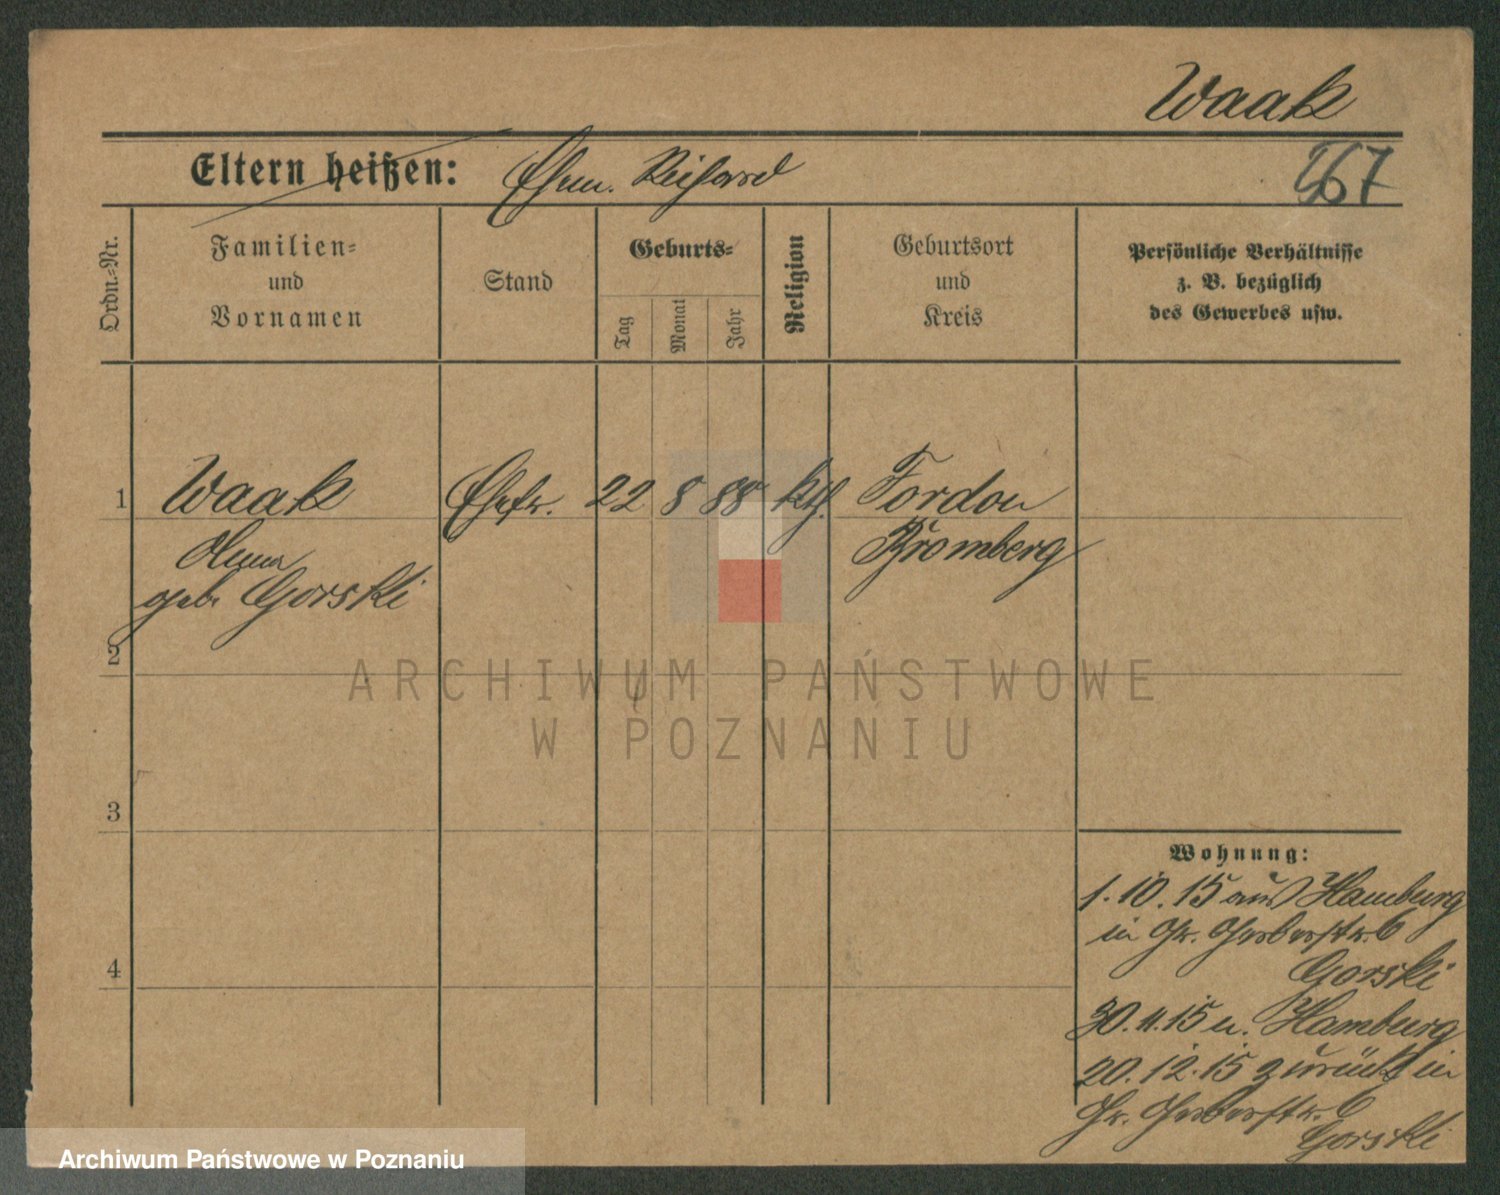 Waak
Eltern heißen: Ehem. Richard
267
Ordn.-Nr.
Familien-
und
Vornamen
Stand
Geburts-
Tag
Monat
Jahr
Religion
Geburtsort
und
Kreis
Persönliche Verhältnisse
z. B. bezüglich
des Gewerbes usw.
1 Waak Ehefr. 22 8 88 kth. Fordon
Bromberg
geb. Gorski
2
3
4
Wohnung:
1.10.15 aus Hamburg
in Gr. Gerberstr. 6
Gorski
30.11.15 n. Hamburg
20.12.15 zurück in
Gr. Gerberstr. 6
Gorski
ARCHIWUM PAŃSTWOWE
W POZNANIU
Archiwum Państwowe w Poznaniu